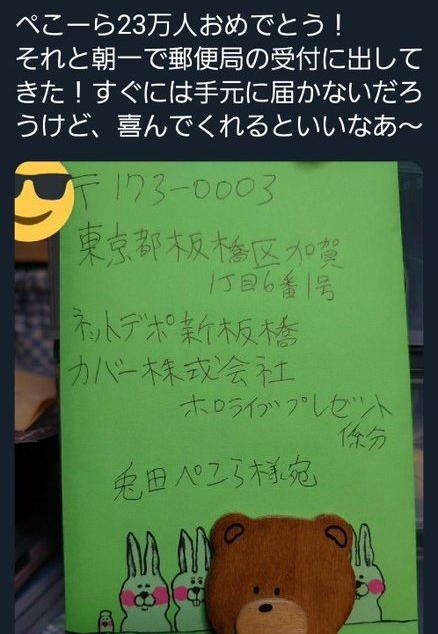 ぺこーら23万人おめでとう！
それと朝一で郵便局の受付に出して
きた！すぐには手元に届かないだろ
うけど、喜んでくれるといいなあ〜
〒173-0003
東京都板橋区加賀
1丁目6番1号
ネットデポ新板橋
カバー株式会社
ホロライブプレゼント
係分
兎田ぺこら様宛